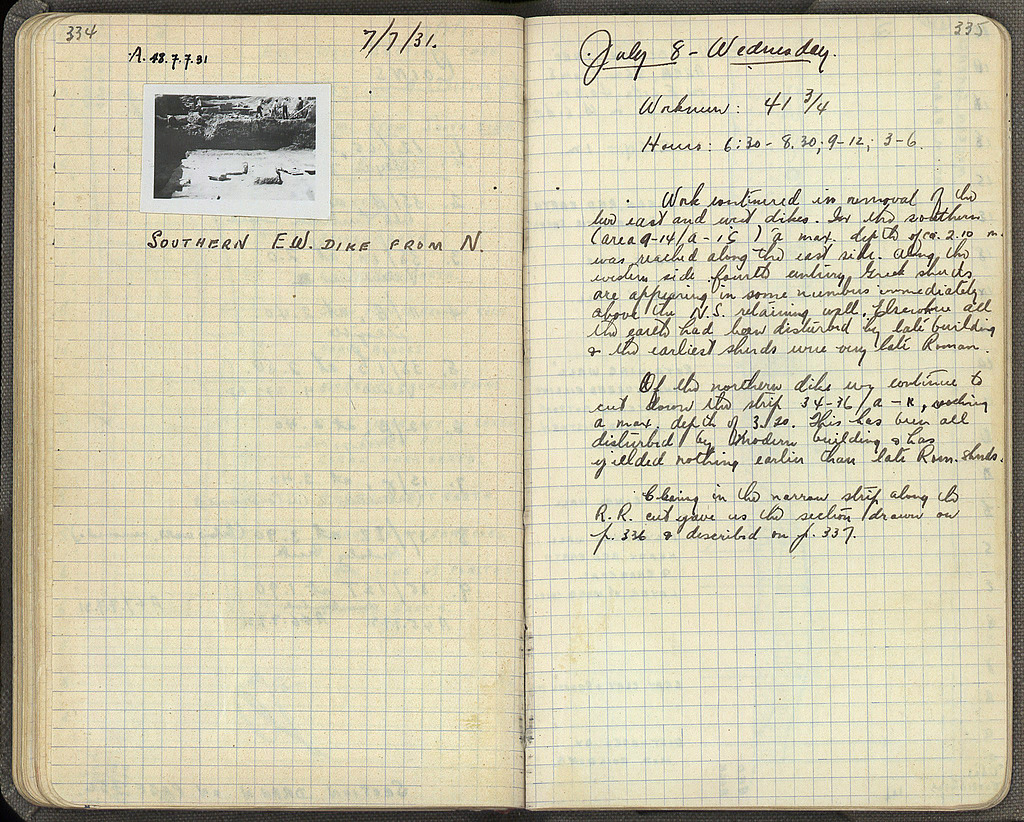 334
7/7/31.
A. 48. 7.7.31
SOUTHERN E.W. DIKE FROM N.
335
July 8 - Wednesday.
Workmen: 41 3/4
Hours: 6:30 - 8.30; 9-12; 3-6.
Work continued in removal of the
two east and west dikes. In the southern
(area 9-14/a - ) a max. depth of ca. 2.10 m.
was reached along the east side. Along the
western side fourth century Greek sherds
are appearing in some numbers immediately
above the N.S. retaining wall. Elsewhere all
the earth had been disturbed by late building
& the earliest sherds were very late Roman.
Of the northern dike we continue to
cut down the strip 34-36/a - K, reaching
a max. depth of 3.20. This has been all
disturbed by modern building & has
yielded nothing earlier than late Rom. sherds.
in the narrow strip along the
R.R. cut gave us the section drawn on
p. 336 & described on p. 337.